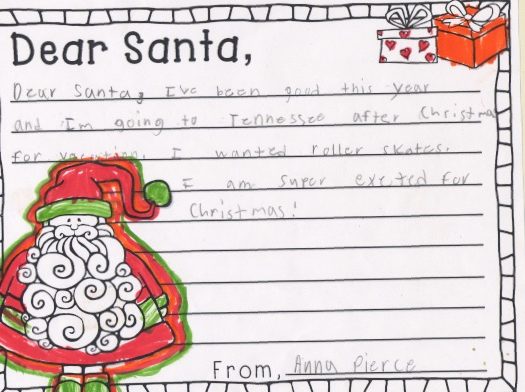 Dear Santa,
Dear Santa, I've been good this year
and I'm going to Tennessee after Christmas
for vacation. I wanted roller skates.
I am super excited for
Christmas!
From, Anna Pierce